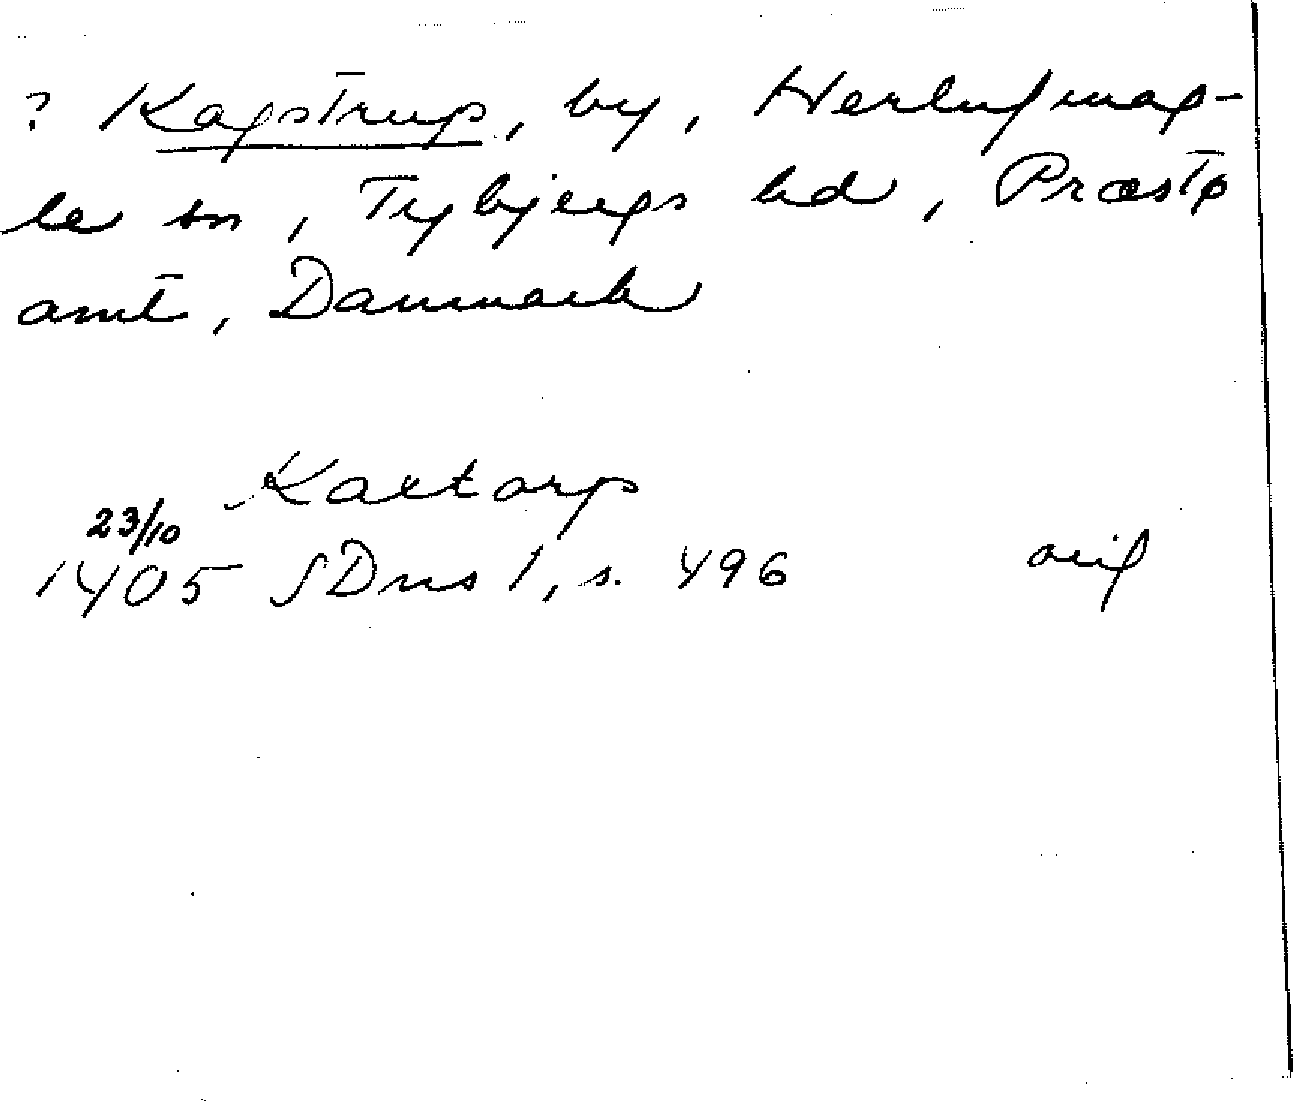 ? Kagstrup, by, Herlufmag-
le sn, Tybjergs hd, Præstø
amt, Danmark
Kaxtorp
23/10
1405 SDns 1, s. 496 orig